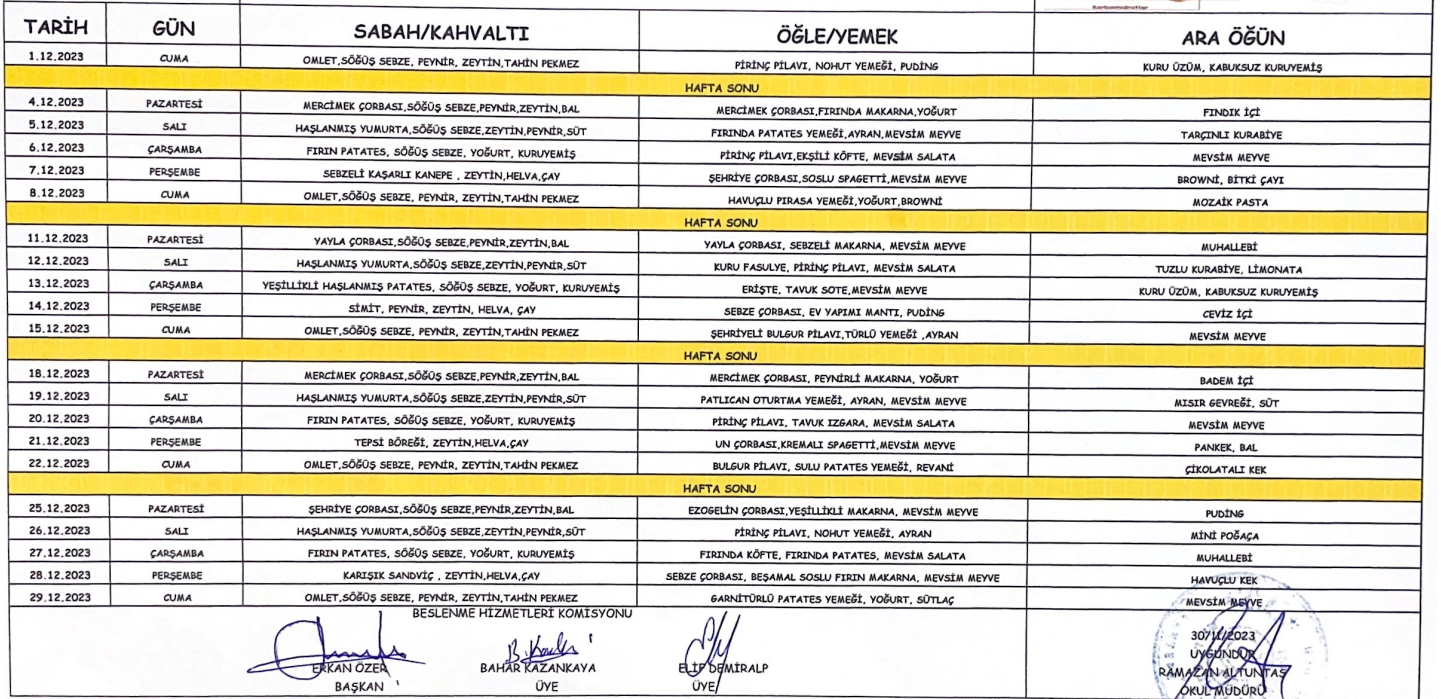 Karbonhidratlar
TARİH GÜN SABAH/KAHVALTI ÖĞLE/YEMEK ARA ÖĞÜN
1.12.2023 CUMA OMLET,SÖĞÜŞ SEBZE, PEYNİR, ZEYTİN,TAHİN PEKMEZ PİRİNÇ PİLAVI, NOHUT YEMEĞİ, PUDİNG KURU ÜZÜM, KABUKSUZ KURUYEMİŞ
HAFTA SONU
4.12.2023 PAZARTESİ MERCİMEK ÇORBASI,SÖĞÜŞ SEBZE,PEYNİR,ZEYTİN,BAL MERCİMEK ÇORBASI,FIRINDA MAKARNA,YOĞURT FINDIK İÇİ
5.12.2023 SALI HAŞLANMIŞ YUMURTA,SÖĞÜŞ SEBZE,ZEYTİN,PEYNİR,SÜT FIRINDA PATATES YEMEĞİ,AYRAN,MEVSİM MEYVE TARÇINLI KURABİYE
6.12.2023 ÇARŞAMBA FIRIN PATATES, SÖĞÜŞ SEBZE, YOĞURT, KURUYEMİŞ PİRİNÇ PİLAVI,EKŞİLİ KÖFTE, MEVSİM SALATA MEVSİM MEYVE
7.12.2023 PERŞEMBE SEBZELİ KAŞARLI KANEPE , ZEYTİN,HELVA,ÇAY ŞEHRİYE ÇORBASI,SOSLU SPAGETTİ,MEVSİM MEYVE BROWNİ, BİTKİ ÇAYI
8.12.2023 CUMA OMLET,SÖĞÜŞ SEBZE, PEYNİR, ZEYTİN,TAHİN PEKMEZ HAVUÇLU PIRASA YEMEĞİ,YOĞURT,BROWNİ MOZAİK PASTA
HAFTA SONU
11.12.2023 PAZARTESİ YAYLA ÇORBASI,SÖĞÜŞ SEBZE,PEYNİR,ZEYTİN,BAL YAYLA ÇORBASI, SEBZELİ MAKARNA, MEVSİM MEYVE MUHALLEBİ
12.12.2023 SALI HAŞLANMIŞ YUMURTA,SÖĞÜŞ SEBZE,ZEYTİN,PEYNİR,SÜT KURU FASULYE, PİRİNÇ PİLAVI, MEVSİM SALATA TUZLU KURABİYE, LİMONATA
13.12.2023 ÇARŞAMBA YEŞİLLİKLİ HAŞLANMIŞ PATATES, SÖĞÜŞ SEBZE, YOĞURT, KURUYEMİŞ ERİŞTE, TAVUK SOTE,MEVSİM MEYVE KURU ÜZÜM, KABUKSUZ KURUYEMİŞ
14.12.2023 PERŞEMBE SİMİT, PEYNİR, ZEYTİN, HELVA, ÇAY SEBZE ÇORBASI, EV YAPIMI MANTI, PUDİNG CEVİZ İÇİ
15.12.2023 CUMA OMLET,SÖĞÜŞ SEBZE, PEYNİR, ZEYTİN,TAHİN PEKMEZ ŞEHRİYELİ BULGUR PİLAVI,TÜRLÜ YEMEĞİ ,AYRAN MEVSİM MEYVE
HAFTA SONU
18.12.2023 PAZARTESİ MERCİMEK ÇORBASI,SÖĞÜŞ SEBZE,PEYNİR,ZEYTİN,BAL MERCİMEK ÇORBASI, PEYNİRLİ MAKARNA, YOĞURT BADEM İÇİ
19.12.2023 SALI HAŞLANMIŞ YUMURTA,SÖĞÜŞ SEBZE,ZEYTİN,PEYNİR,SÜT PATLICAN OTURTMA YEMEĞİ, AYRAN, MEVSİM MEYVE MISIR GEVREĞİ, SÜT
20.12.2023 ÇARŞAMBA FIRIN PATATES, SÖĞÜŞ SEBZE, YOĞURT, KURUYEMİŞ PİRİNÇ PİLAVI, TAVUK IZGARA, MEVSİM SALATA MEVSİM MEYVE
21.12.2023 PERŞEMBE TEPSİ BÖREĞİ, ZEYTİN,HELVA,ÇAY UN ÇORBASI,KREMALI SPAGETTİ,MEVSİM MEYVE PANKEK, BAL
22.12.2023 CUMA OMLET,SÖĞÜŞ SEBZE, PEYNİR, ZEYTİN,TAHİN PEKMEZ BULGUR PİLAVI, SULU PATATES YEMEĞİ, REVANİ ÇİKOLATALI KEK
HAFTA SONU
25.12.2023 PAZARTESİ ŞEHRİYE ÇORBASI,SÖĞÜŞ SEBZE,PEYNİR,ZEYTİN,BAL EZOGELİN ÇORBASI,YEŞİLLİKLİ MAKARNA, MEVSİM MEYVE PUDİNG
26.12.2023 SALI HAŞLANMIŞ YUMURTA,SÖĞÜŞ SEBZE,ZEYTİN,PEYNİR,SÜT PİRİNÇ PİLAVI, NOHUT YEMEĞİ, AYRAN MİNİ POĞAÇA
27.12.2023 ÇARŞAMBA FIRIN PATATES, SÖĞÜŞ SEBZE, YOĞURT, KURUYEMİŞ FIRINDA KÖFTE, FIRINDA PATATES, MEVSİM SALATA MUHALLEBİ
28.12.2023 PERŞEMBE KARIŞIK SANDVİÇ , ZEYTİN,HELVA,ÇAY SEBZE ÇORBASI, BEŞAMAL SOSLU FIRIN MAKARNA, MEVSİM MEYVE HAVUÇLU KEK
29.12.2023 CUMA OMLET,SÖĞÜŞ SEBZE, PEYNİR, ZEYTİN,TAHİN PEKMEZ GARNİTÜRLÜ PATATES YEMEĞİ, YOĞURT, SÜTLAÇ MEVSİM MEYVE
BESLENME HİZMETLERİ KOMİSYONU
30/11/2023
UYGUNDUR
ERKAN ÖZER BAHAR KAZANKAYA ELİF DEMİRALP RAMAZAN ALTUNTAŞ
BAŞKAN ÜYE ÜYE OKUL MÜDÜRÜ